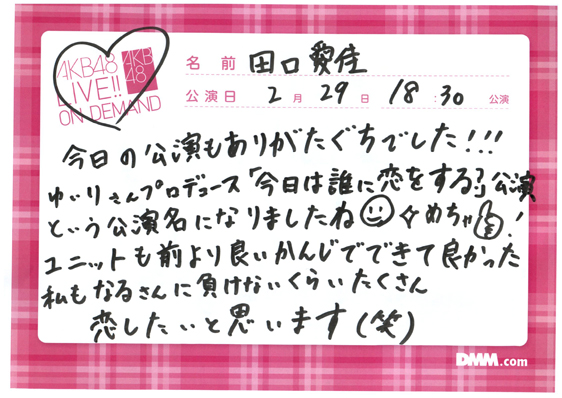 AKB48
LIVE!!
ON DEMAND
AKB
48
名前 田口愛佳
公演日 2月29日 18:30公演
今日の公演もありがたぐちでした!!!
ゆいりさんプロデュース「今日は誰に恋をする?」公演
という公演名になりましたね めちゃ!
ユニットも前より良いかんじでできて良かった
私もなるさんに負けないくらいたくさん
恋したいと思います(笑)
DMM.com